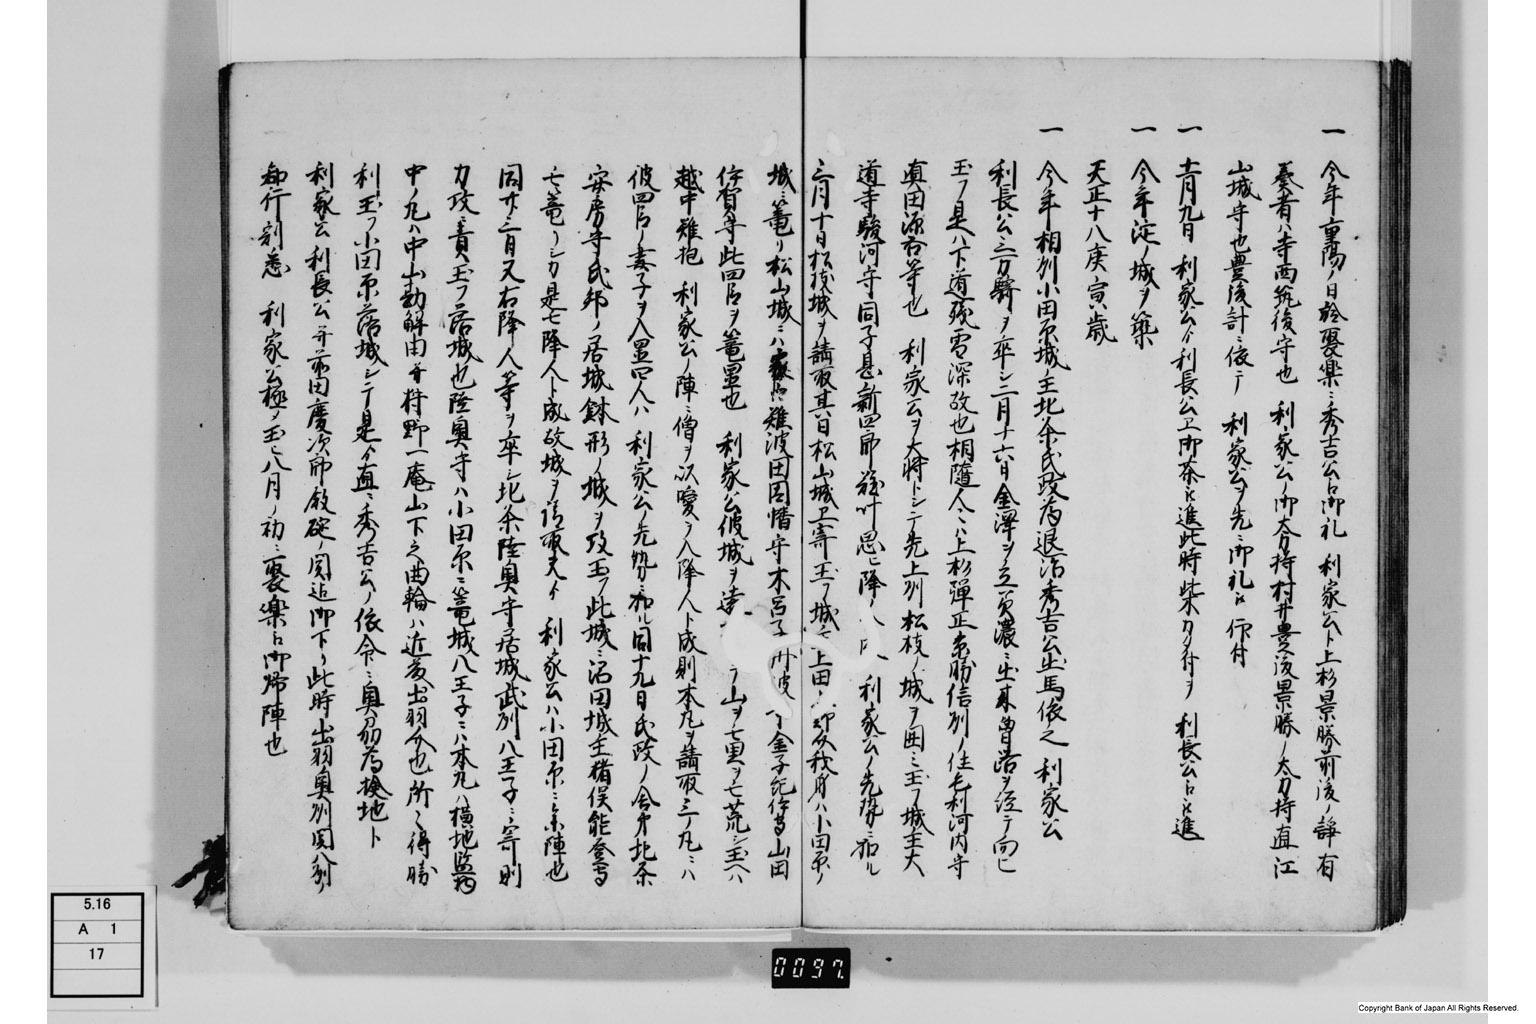 一 今年重陽ノ日於聚楽ニ秀吉公ヘ御礼 利家公ト上杉景勝前後ノ諍有
奏者ハ寺西筑後守也 利家公ノ御太刀持村井豊後景勝ノ太刀持直江
山城守也豊後計ニ依テ 利家公ヲ先ニ御礼被 仰付
一 十一月九日 利家公ゟ利長公エ御茶被進此時柴ノ付ヲ 利長公ヘ被進
一 今年淀ノ城ヲ築
天正十八庚寅歳
一 今年相州小田原城ノ主北条氏政為退治秀吉公出馬依之 利家公
利長公三万騎ヲ卒シ二月十六日金澤ヲ立 濃ニ出木曽路ヲ経テ向ヒ
玉フ是ハ下道残雪深故也相随人々ハ上杉弾正景勝信州ノ住毛利河内守
真田源 等也 利家公ヲ大将トシテ先上州松枝ノ城ヲ囲ミ玉フ城主大
道寺駿河守同子息新四郎難叶思ヒ降ノ人ト成 利家公ノ先勢ニ加ル
三月十日松枝城ヲ請取其日松山城エ寄玉フ城主上田 ハ小田原ノ
城ニ篭リ松山城ニハ 難波田因幡守木呂子丹波守金子紀伊守山田
伊賀守此四人ヲ篭置也 利家公彼城ヲ 山ヲ モ荒シ玉ヘハ
越中難抱 利家公ノ陣ニ僧ヲ以嗳ヲ入降人ト成則本丸ヲ請取三ノ丸ニハ
彼四人ノ妻子ヲ入置四人ハ 利家公ノ先勢ニ加ル同十九日氏政ノ舎弟北条
安房守氏邦ノ居城鉢形ノ城ヲ攻玉フ此城ニ沼田城主猪俣能登守
モ篭リシカ是モ降人ト成故城ヲ請取夫ゟ 利家公ハ小田原ニ参陣也
同廿三日又右降人等ヲ卒シ北条陸奥守居城武州八王子ニ寄則
力攻ニ責玉フ落城也陸奥守ハ小田原ニ篭城八王子ニハ本丸ハ横地監物
中ノ丸ハ中山勘解由并狩野一庵山下之曲輪ハ近藤出羽介也所々得勝
利玉フ小田原落城シテ是ゟ直ニ秀吉公ノ依命ニ奥州為検地ト
利家公利長公并前田慶次郎殿碇ノ関迄御下リ此時出羽奥州関八州ノ
知行割悉 利家公極メ玉ヒ八月ノ初ニ聚楽ヘ御帰陣也
5.16
A 1
17
0097.
Copyright Bank of Japan All Rights Reserved.